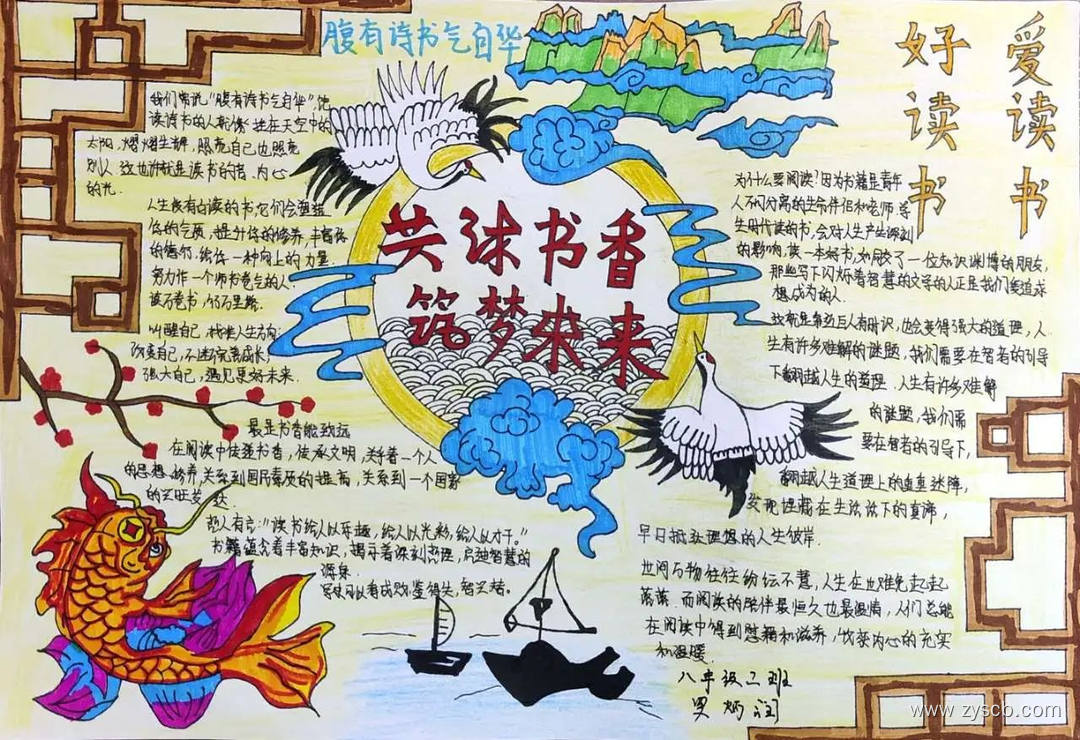 腹有诗书气自华
爱读书
好读书
共沐书香
筑梦未来
我们常说“腹有诗书气自华”饱
读诗书的人就像挂在天空中的
太阳,熠熠生辉,照亮自己也照亮
别人 这也许就是读书的者 内心
的光.
人生没有白读的书,它们会塑造
你的气质,提升你的修养,丰富你
的德行,给你一种向上的力量
努力作一个师书卷气的人
读万卷书,行万里路.
叫醒自己,找准人生方向;
改变自己,不迷茫完善成长;
强大自己,遇见更好未来.
最是书香能致远
在阅读中传递书香,传承文明,关乎着一个人
的思想 修养,关系到国民素质的提高,关系到一个国家
的兴旺发达
哲人有言:“读书给人以乐趣,给人以光彩,给人以才干。”
书籍蕴含着丰富知识,揭示着深刻哲理,启迪智慧的
源泉
可以看成败鉴得失,知兴替.
为什么要阅读?因为书籍是青年
人不可分离的生命伴侣和老师 学
生时代读的书,会对人生产生深刻
的影响,读一本好书,如同交了一位知识渊博的朋友,
那些写下闪烁着智慧的文字的人正是我们要追求
想成为的人.
人生
有许多难解的谜题,我们需要在智者的引导
下翻越人生的道理.人生有许多难解
的谜题,我们需
要在智者的引导下,
翻越人生道理上的重重迷障,
发现埋藏在生活法下的真谛,
早日抵达理想的人生彼岸.
世间万物往往纷纭不意,人生在世难免起起
落落.而阅读的陪伴最恒久也最温情,人们总能
在阅读中得到慰藉和滋养,收获内心的充实
和温暖.
八年级二班
www.zyscb.com